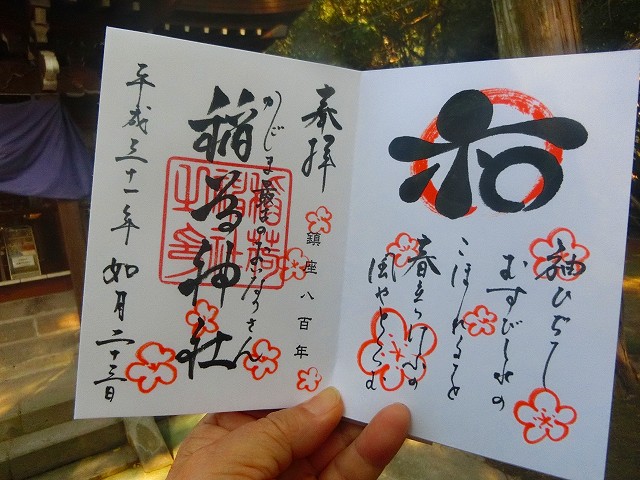 和
袖ひぢて
むすびし水の
こほれるを
春立つけふの
風やとくらむ
奉拝
鎮座八百年
かじま最古のおいなりさん
稲荷神社
平成三十一年 如月二十三日